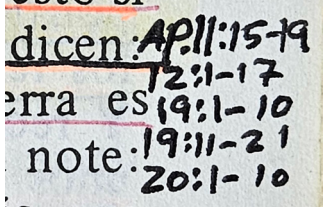 dicen: AP.11:15-19
12:1-17
erra es 19:1-10
19:11-21
note: 20:1-10